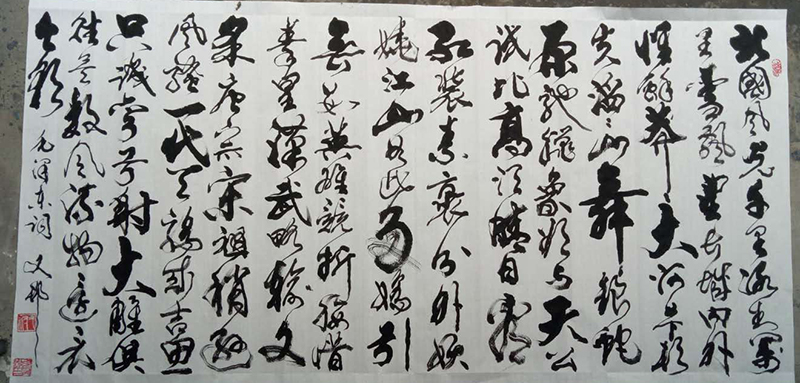 北國风光千里冰封萬
里雪飄望长城内外
惟餘莽大河上下頓
失滔〻山舞銀蛇
原馳腊象欲与天公
試比高須晴日看
红装素裹分外妖
娆江山如此多嬌引
無數英雄競折腰惜
秦皇漢武略输文
采唐宗宋祖稍逊
风骚一代天骄成吉思
只識弯弓射大雕俱
往矣數风流物还看
今朝 毛澤东词